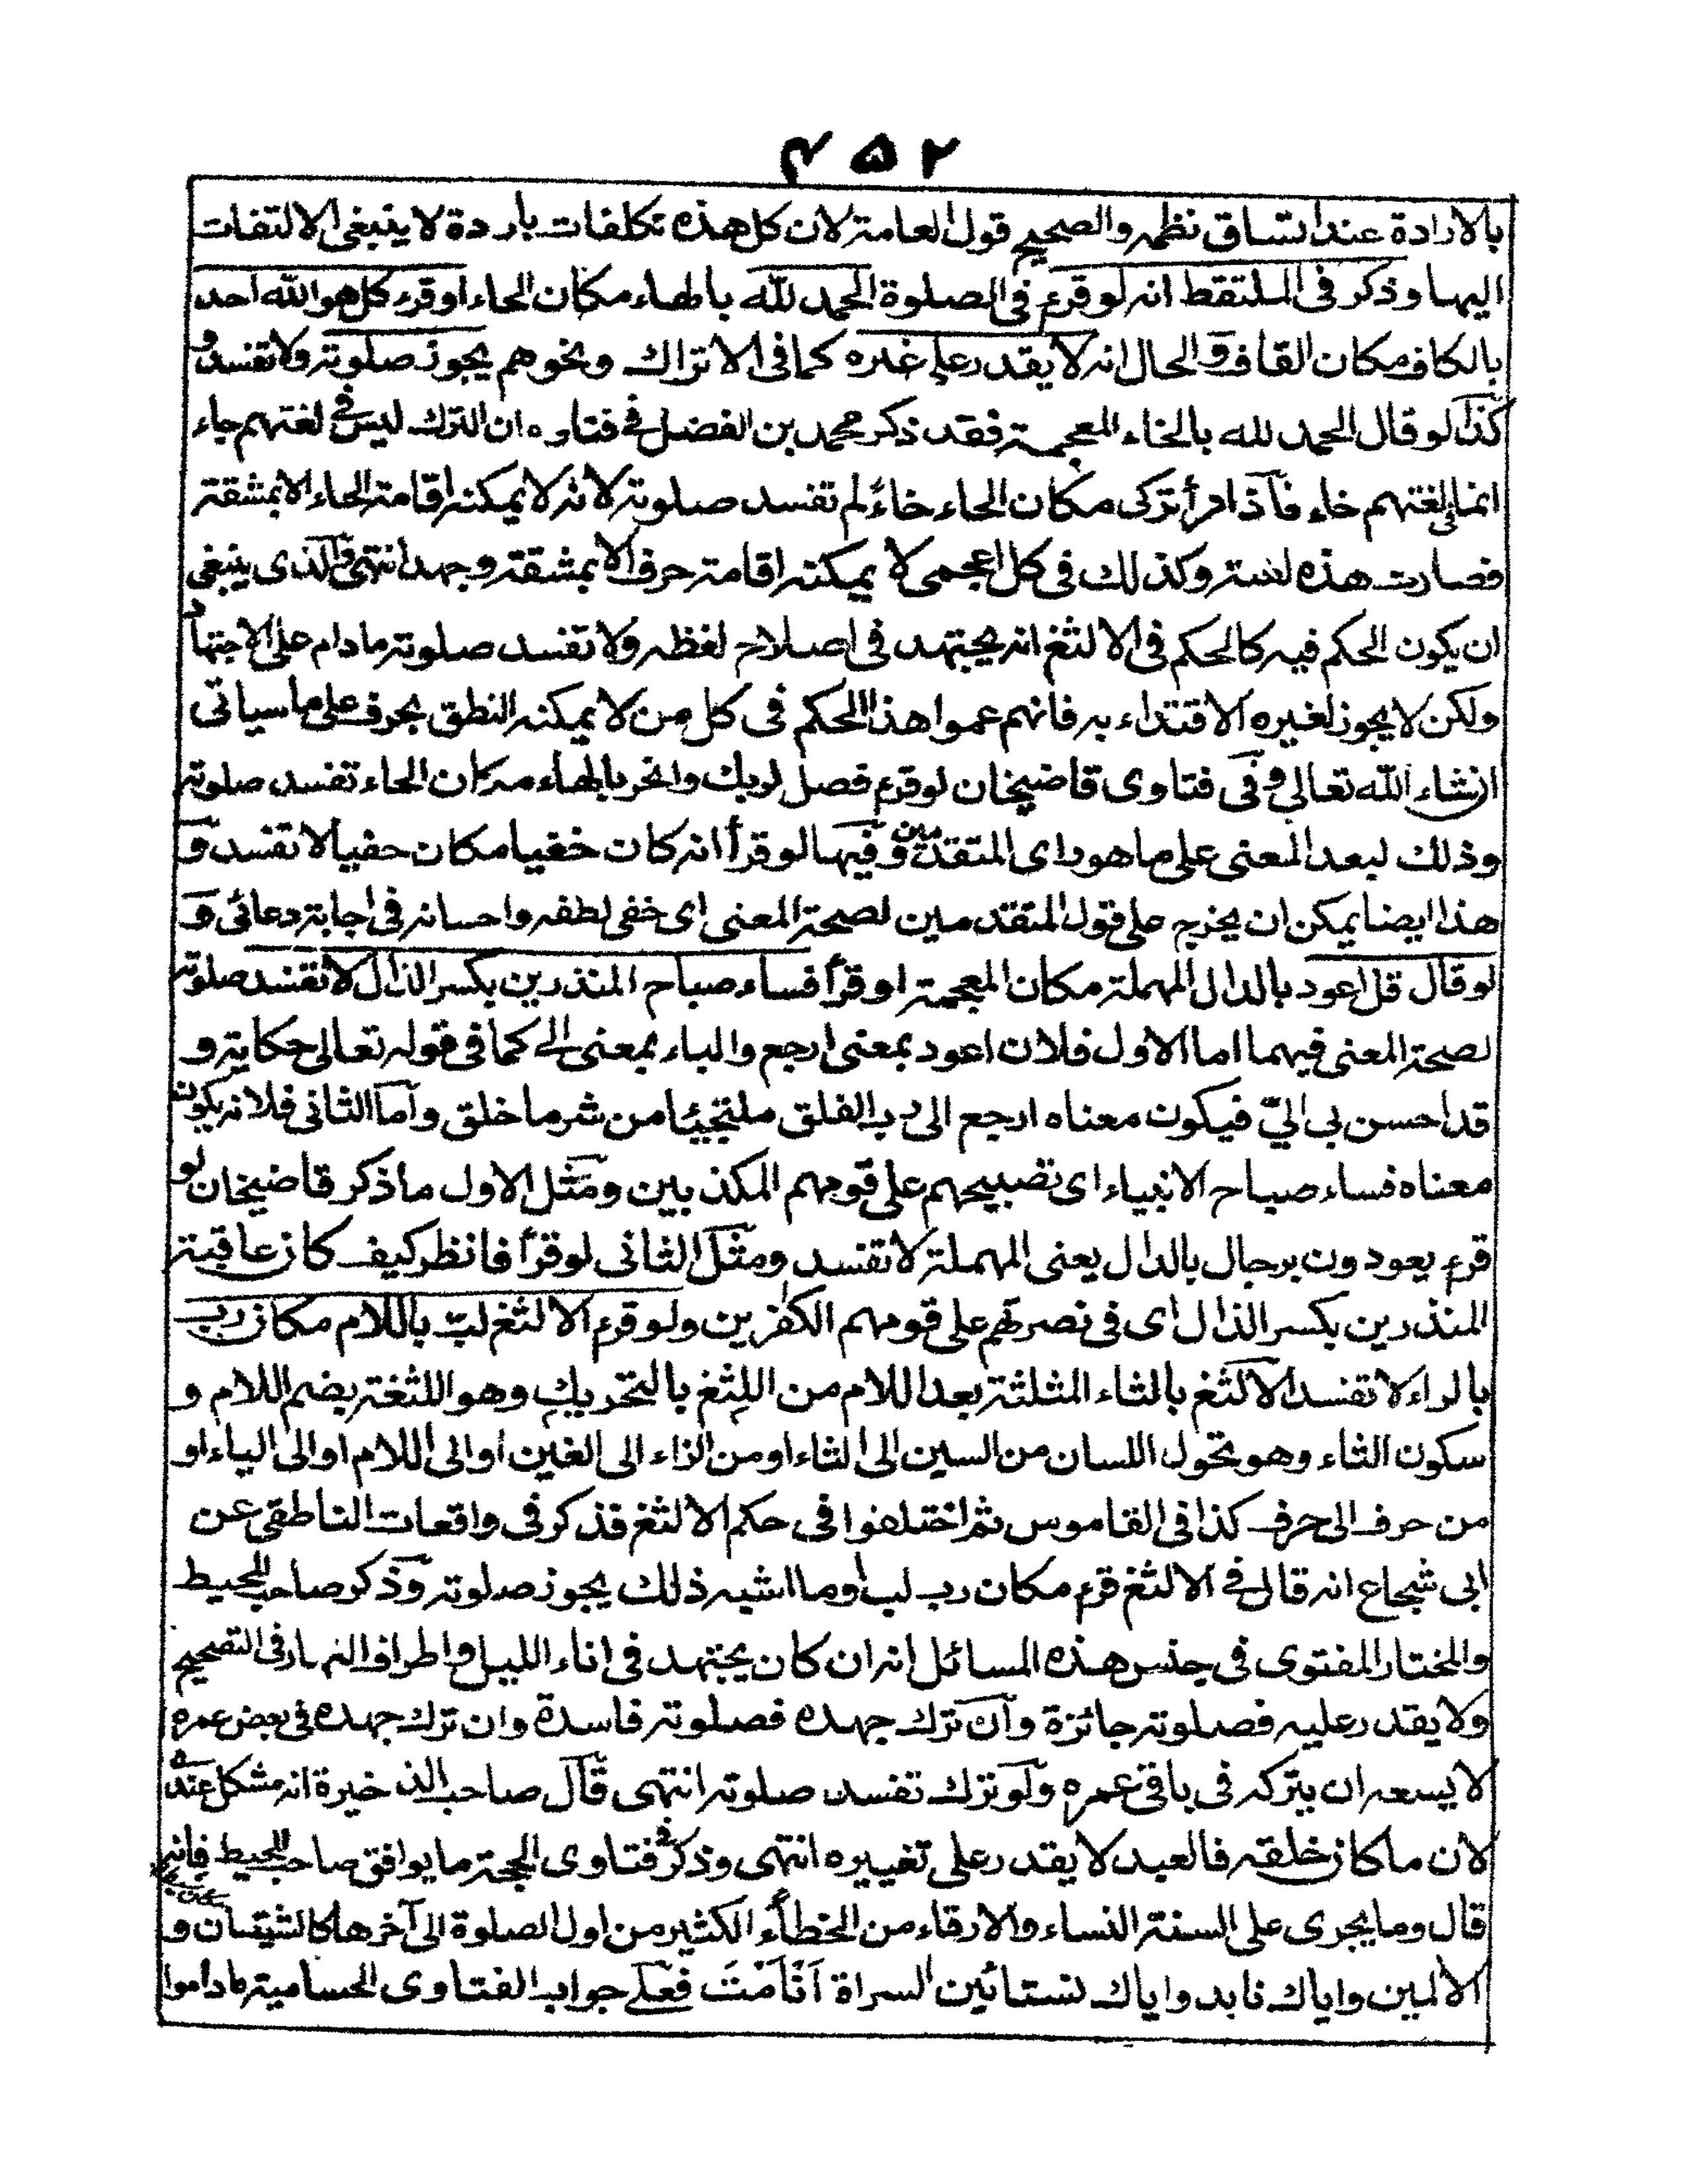 ٤٥٢
بالارادة عند انتساق نظمه والصحيح قول العامة لان كل هذه تكلفات باردة لا ينبغى الالتفات
اليها وذكر فى الملتقط انه لو قرء فى الصلوة الحمد لله بالهاء مكان الحاء او قرء كل هو الله احد
بالكاف مكان القاف والحال انه لا يقدر على غيره كما فى الاتراك ونحوهم يجوز صلوته ولا تفسد و
كذا لو قال الحمد لله بالخاء المعجمة فقد ذكر محمد بن الفضل فى فتاوه ان الترك ليس فى لغتهم حاء
انما فى لغتهم خاء فاذا قرأ تركى مكان الحاء خاءً لم تفسد صلوته لانه لا يمكنه اقامة الحاء الا بمشقة
فصارت هذه لغته وكذلك فى كل اعجمى لا يمكنه اقامة حرف الا بمشقة وجهد انتهى والذى ينبغى
ان يكون الحكم فيه كالحكم فى الالثغ انه يجتهد فى اصلاح لفظه ولا تفسد صلوته مادام على الاجتهاد
ولكن لا يجوز لغيره الاقتداء به فانهم عموا هذا الحكم فى كل من لا يمكنه النطق بحرف على ما سياتى
انشاء الله تعالى وفى فتاوى قاضيخان لو قرء فصل لربك وانحر بالهاء مكان الحاء تفسد صلوته
وذلك لبعد المعنى على ما هو راى المتقدمين وفيها لو قرأ انه كان خفيا مكان حفيا لا تفسد و
هذا ايضا يمكن ان يخرج على قول المتقدمين لصحة المعنى اى خفى لطفه واحسانه فى اجابة دعائى و
لو قال قل اعود بالدال المهملة مكان المعجمة او قرأ فساء صباح المنذرين بكسر الذال لا تفسد صلوته
لصحة المعنى فيهما اما الاول فلان اعود بمعنى ارجع والباء بمعنى الى كما فى قوله تعالى حكاية و
قد احسن بى الىّ فيكون معناه ارجع الى رب الفلق ملتجئا من شر ما خلق واما الثانى فلانه يكون
معناه فساء صباح الانبياء اى تصبيحهم على قومهم المكذبين ومثل الاول ما ذكر قاضيخان لو
قرء يعودون برجال بالدال يعنى المهملة لا تفسد ومثل الثانى لو قرأ فانظر كيف كان عاقبة
المنذرين بكسر الذال اى فى نصرتهم على قومهم الكفرين ولو قرء الالثغ لبّ باللام مكان رب
بالراء لا تفسد الالثغ بالثاء المثلثة بعد اللام من اللثغ بالتحريك وهو اللثغة بضم اللام و
سكون الثاء وهو تحول اللسان من السين الى الثاء او من الراء الى الغين او الى اللام او الى الياء او
من حرف الى حرف كذا فى القاموس ثم اختلفوا فى حكم الالثغ فذكر فى واقعات الناطقى عن
ابى شجاع انه قال فى الالثغ قرء مكان رب لب او ما اشبه ذلك يجوز صلوته وذكر صاحب المحيط
والمختار للفتوى فى جنس هذه المسائل انه ان كان يجتهد فى اناء الليل واطراف النهار فى التصحيح
ولا يقدر عليه فصلوته جائزة وان ترك جهده فصلوته فاسدة وان ترك جهده فى بعض عمره
لا يسعه ان يتركه فى باقى عمره ولو ترك تفسد صلوته انتهى قال صاحب الذخيرة انه مشكل عنده
لان ما كان خلقه فالعبد لا يقدر على تغييره انتهى وذكر فى فتاوى الحجة ما يوافق صاحب المحيط فانه
قال وما يجرى على السنة النساء والارقاء من الخطأ الكثير من اول الصلوة الى آخرها كالشيتان و
الالمين واياك نابد واياك نستائين السراة اَنْاَمْتَ فعلى جواب الفتاوى الحسامية ما داموا